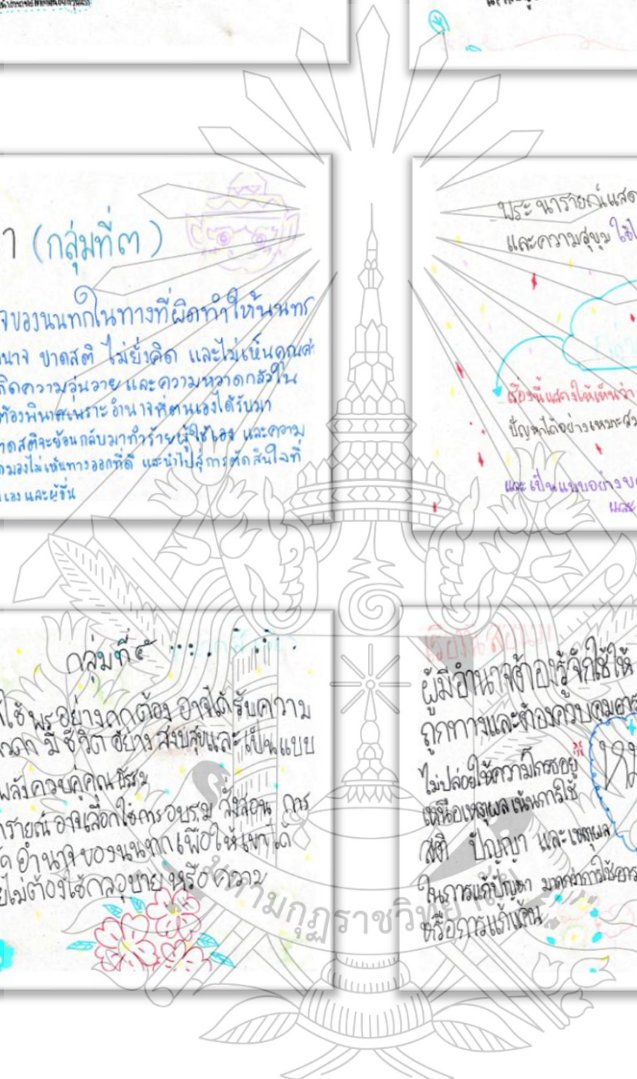 า (กลุ่มที่๓)
จของนนทกในทางที่ผิดทำให้นนทก
นาจ ขาดสติ ไม่ยั้งคิด และไม่เห็นคุณค่
กิดความวุ่นวาย และความหวาดกลัวใน
ต้องพินาศเพราะอำนาจที่ตนเองได้รับมา
าดสติจะย้อนกลับมาทำร้ายผู้ใช้เอง และความ
ดมองไม่เห็นทางออกที่ดี และนำไปสู่การตัดสินใจที่
เอง และผู้อื่น
พระนารายณ์แสด
และความสุขุม ใช้
เรื่องนี้แสดงให้เห็นว่า
ปัญหาได้อย่างเหมาะส
และเป็นแบบอย่างข
และ
กลุ่มที่๕
ใช้พรอย่างถูกต้อง อาจได้รับความ
มีชีวิตอย่างสงบสุขและเป็นแบบ
พลังควบคู่คุณธรรม
ารายณ์ อาจเลือกใช้การอบรม สั่งสอน การ
ด อำนาจของนนทกเพื่อให้เขาได้
ยไม่ต้องใช้กลอุบาย หรือความ
ผู้มีอำนาจต้องรู้จักใช้ให้
ถูกทางและต้องควบคุมอาร
ไม่ปล่อยให้ความโกรธอยู่
เหนือเหตุผล เน้นการใช้
สติ ปัญญา และเหตุผล
ในการแก้ปัญหา มากกว่าการใช้อาร
หรือการแก้แค้น
มกุฏราชวิทย